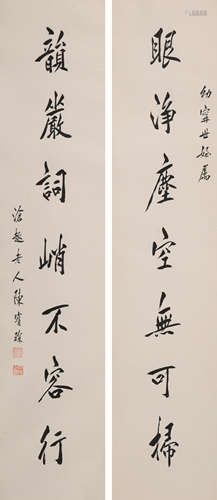 幼世姪屬
眼淨塵空無可掃
韻嚴詞峭不容行
滄趣老人陳寶琛